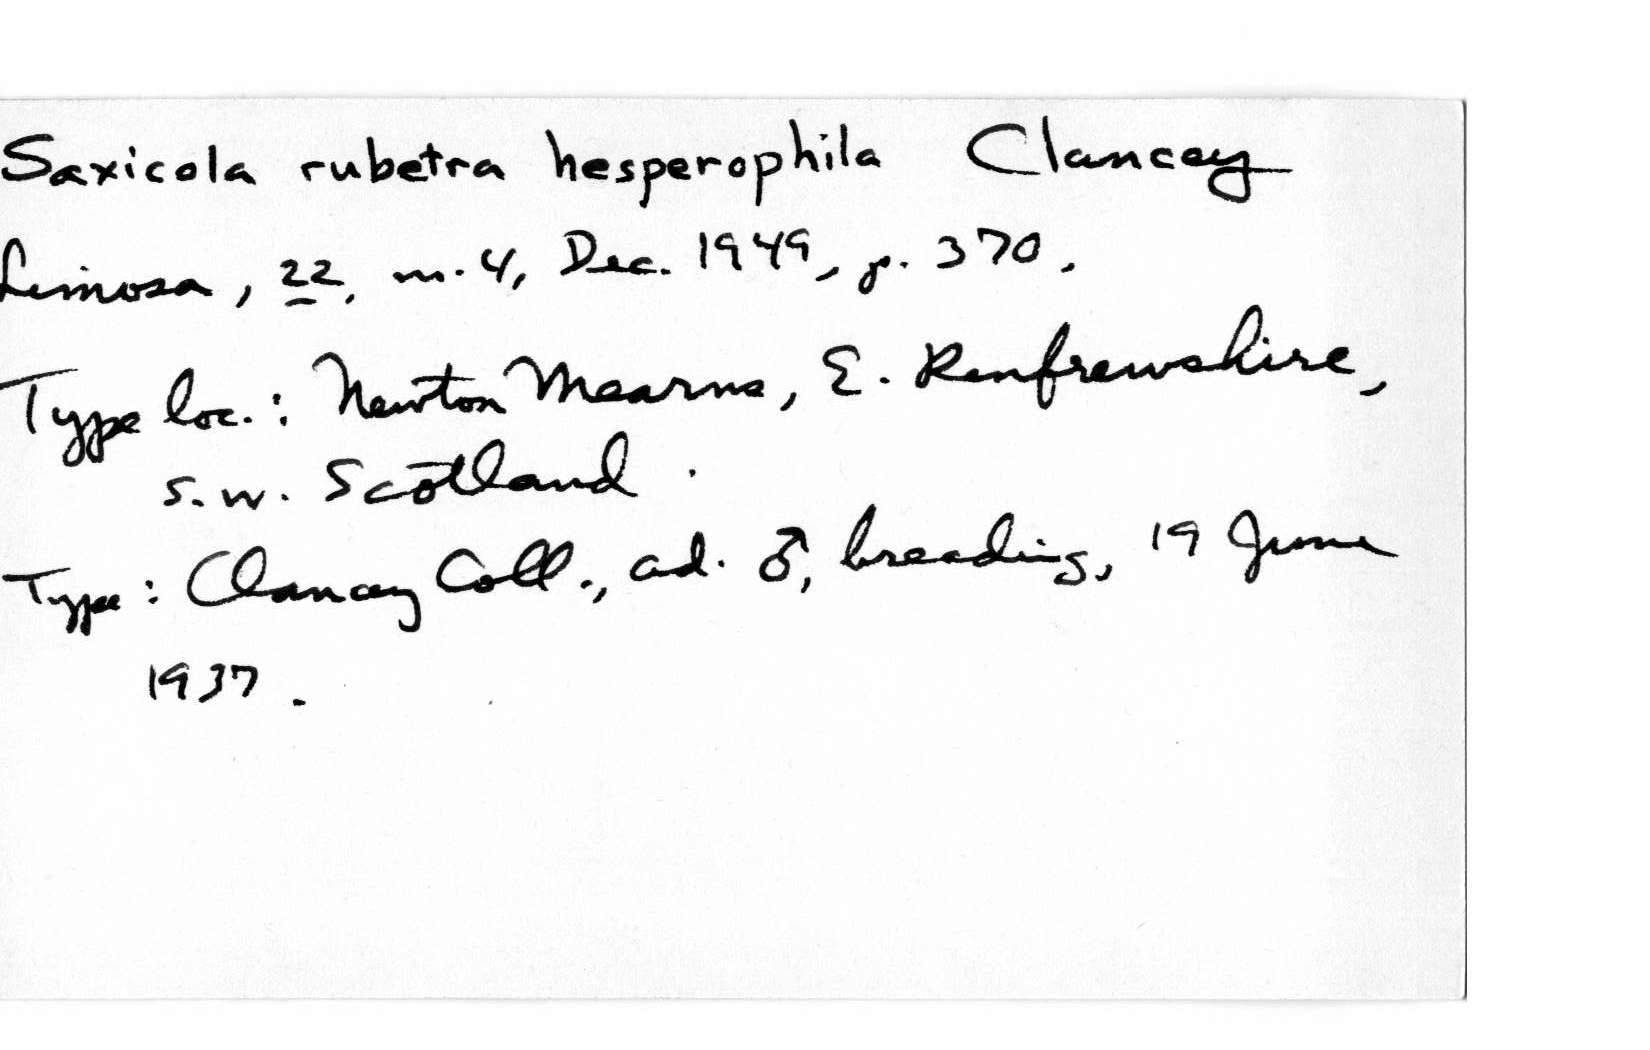 Saxicola rubetra hesperophila Clancey
Limosa, 22, n. 4, Dec. 1949, p. 370.
Type loc.: Newton Mearns, E. Renfrewshire,
s.w. Scotland.
Type: Clancey Coll., ad. ♂, breeding, 19 June
1937.